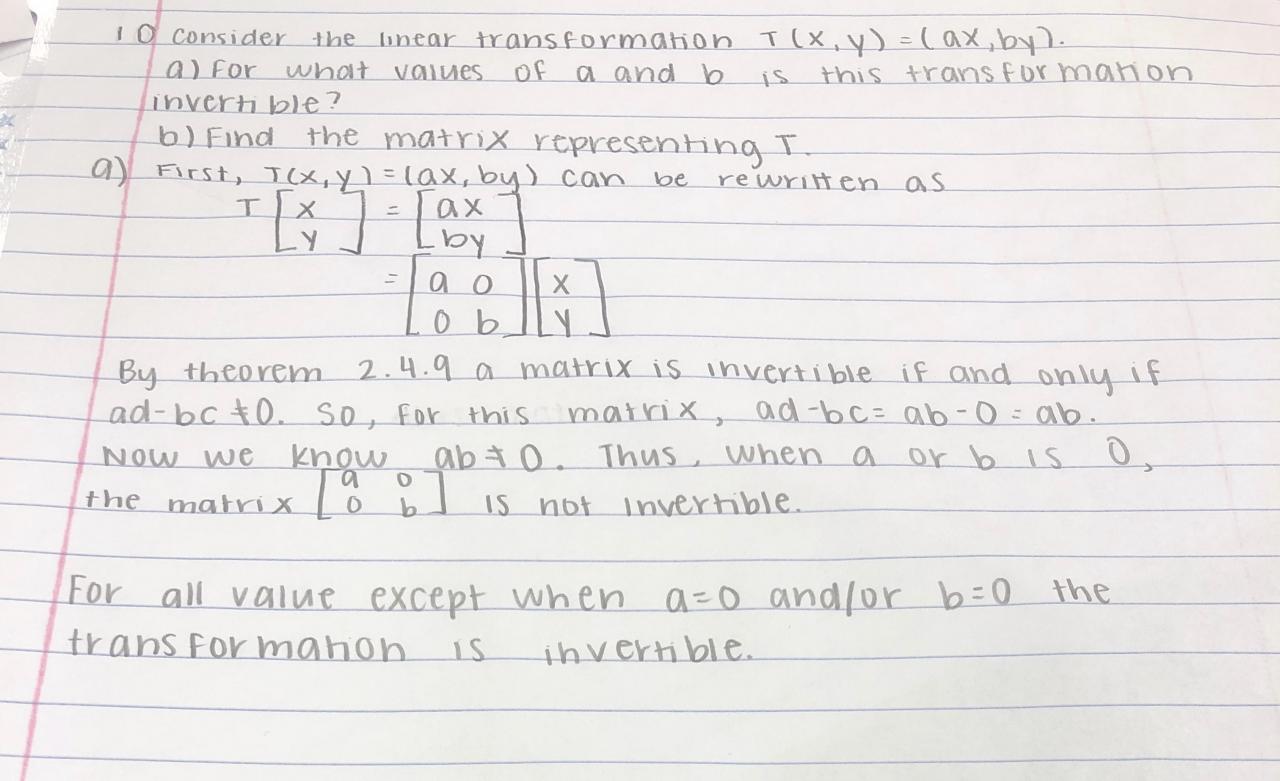 10 consider the linear transformation T(x,y)=(ax,by).
a) For what values of a and b is this transformation
invertible?
b) Find the matrix representing T.
a) First, T(x,y)=(ax,by) can be rewritten as
T [x y] = [ax by]
= [a 0 0 b] [x y]
By theorem 2.4.9 a matrix is invertible if and only if
ad-bc≠0. So, for this matrix, ad-bc= ab-0=ab.
Now we know ab≠0. Thus, when a or b is 0,
the matrix [a 0 0 b] is not invertible.
For all value except when a=0 and/or b=0 the
transformation is invertible.